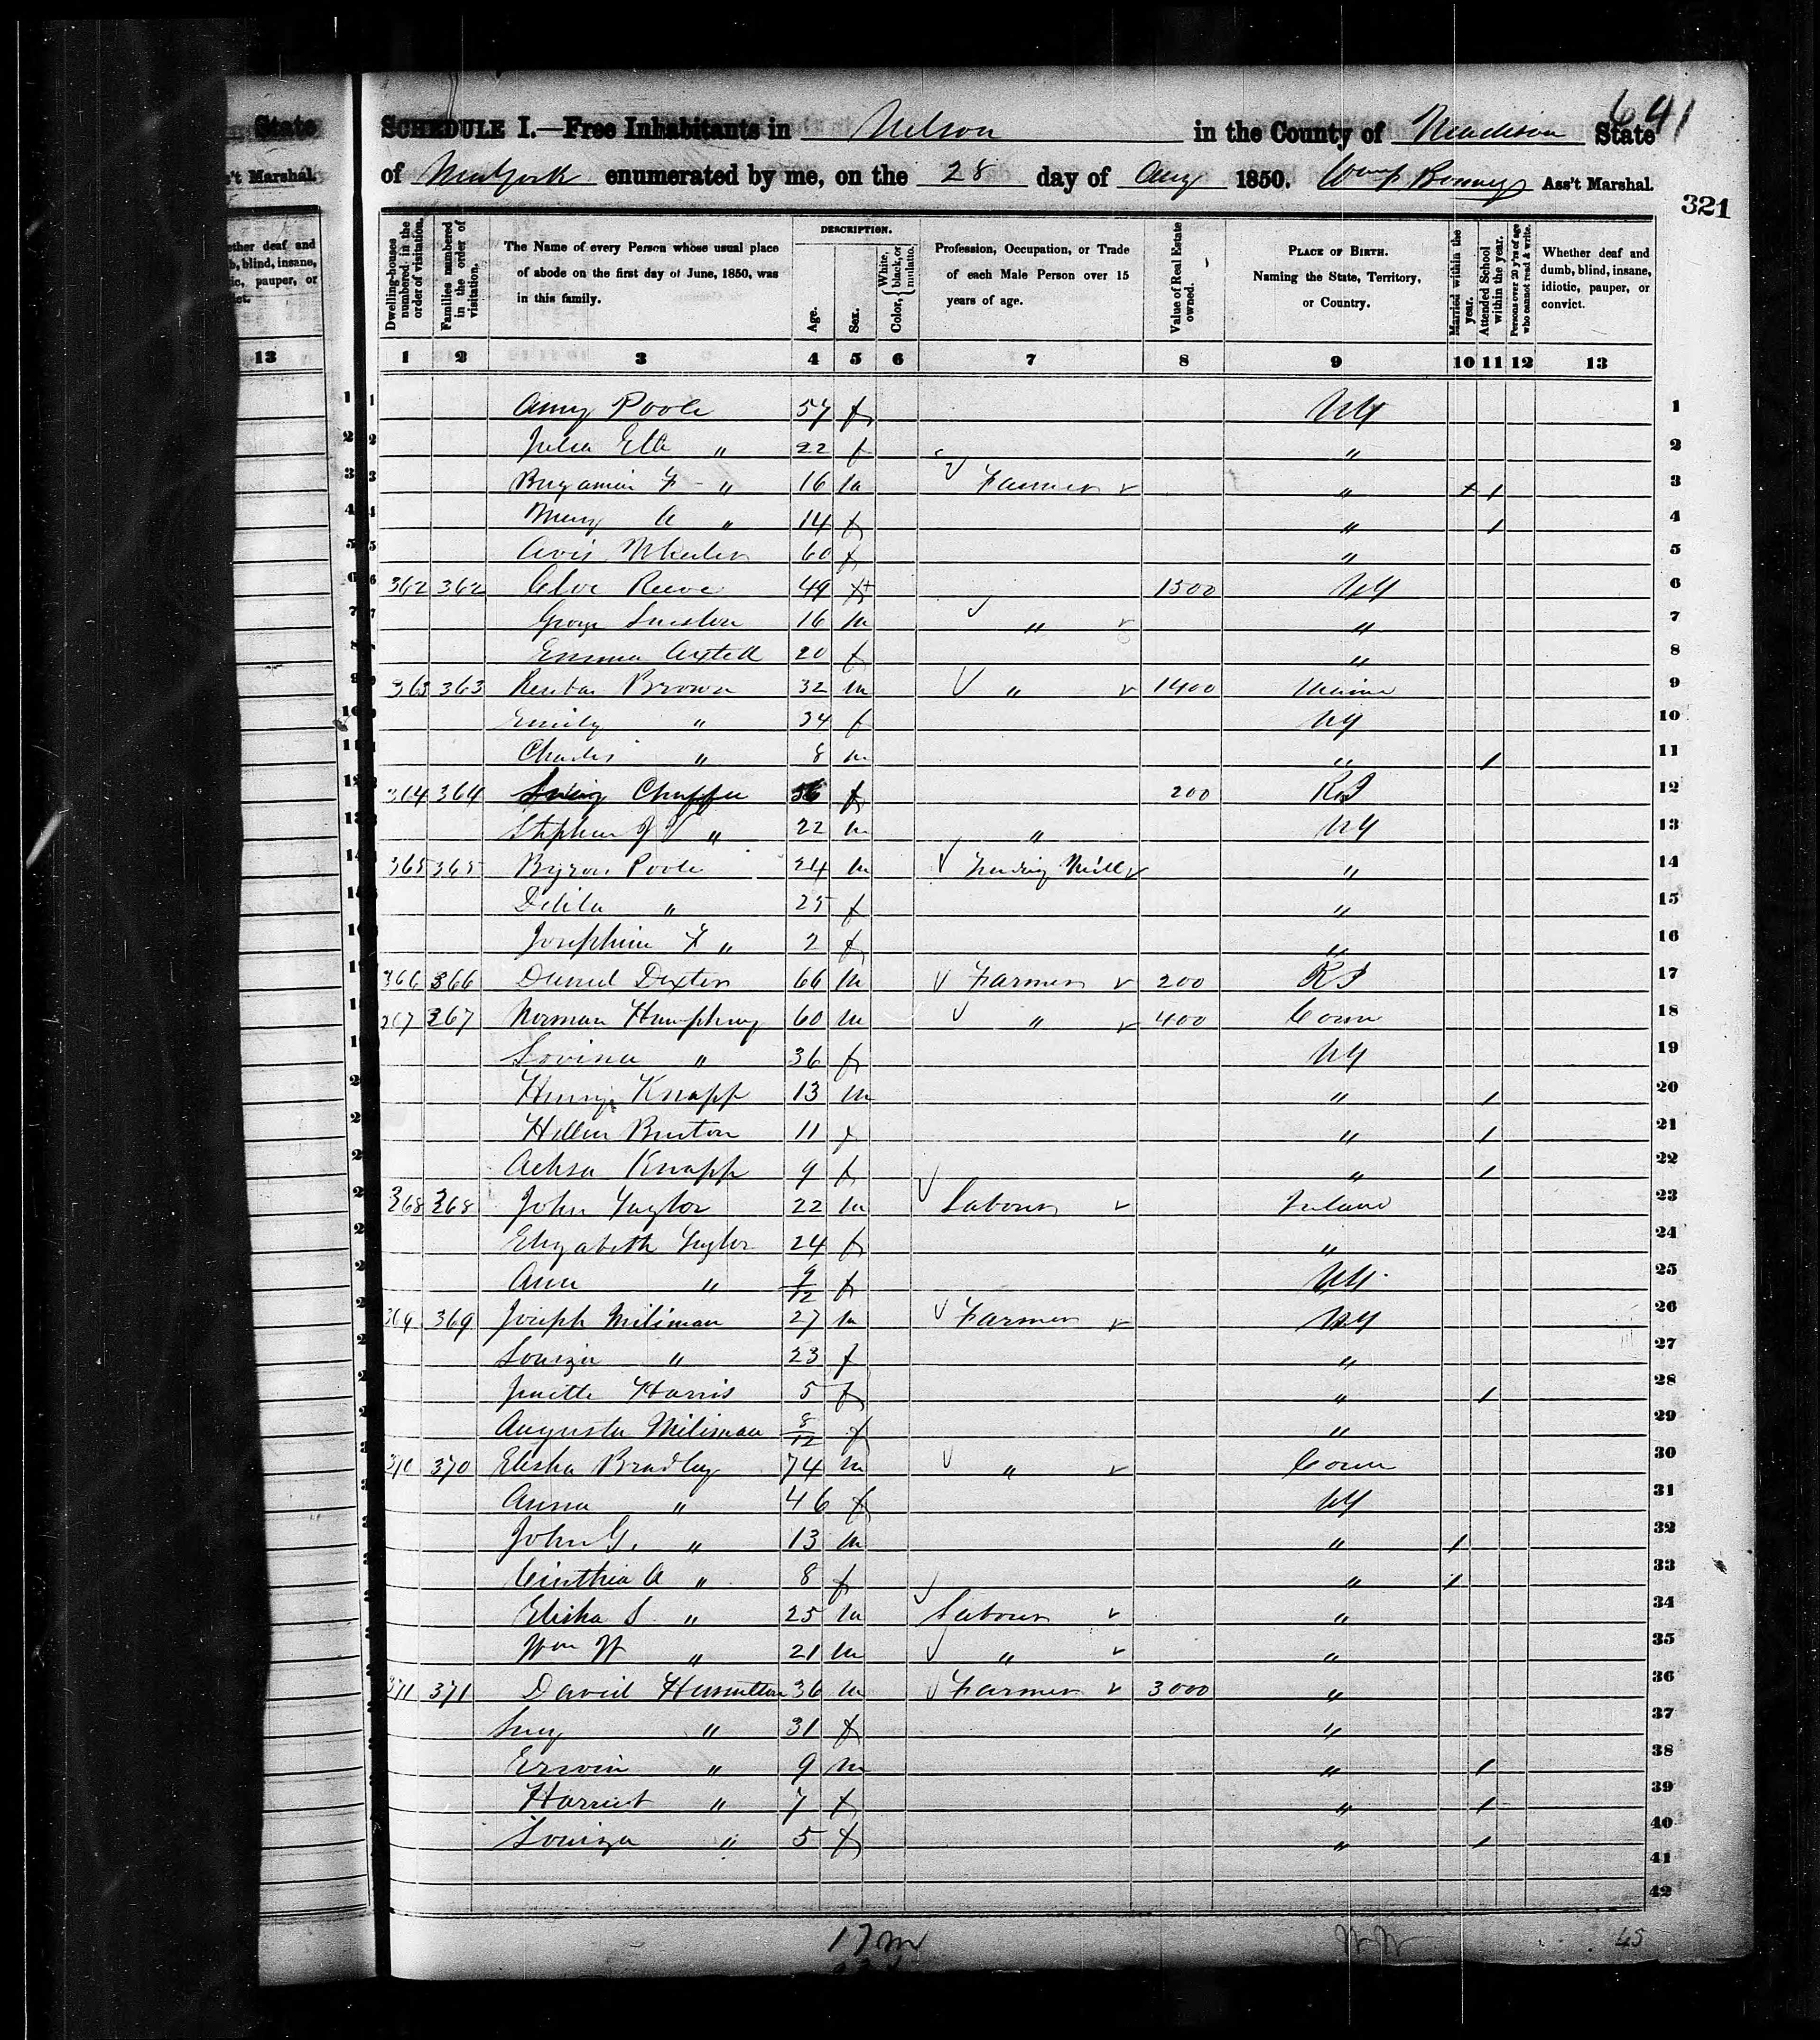 State
't Marshal.
ether deaf and
b, blind, insane,
ic, pauper, or
ct.
13
641
SCHEDULE I.—Free Inhabitants in Nelson in the County of Madison State
of New York enumerated by me, on the 28 day of Aug 1850. Ass't Marshal.
321
Dwelling-houses numbered in the order of visitation.
Families numbered in the order of visitation.
The Name of every Person whose usual place of abode on the first day of June, 1850, was in this family.
DESCRIPTION.
Age.
Sex.
Color, White, black, or mulatto.
Profession, Occupation, or Trade of each Male Person over 15 years of age.
Value of Real Estate owned.
PLACE OF BIRTH. Naming the State, Territory, or Country.
Married within the year.
Attended School within the year.
Persons over 20 y'rs of age who cannot read & write.
Whether deaf and dumb, blind, insane, idiotic, pauper, or convict.
1 2 3 4 5 6 7 8 9 10 11 12 13
1 Amy Poole 57 f NY 1
2 Julia Ette " 22 f " 2
3 Benjamin F " 16 m Farmer " + / 3
4 Mary A " 14 f " / 4
5 Avis Wheeler 60 f " 5
6 362 362 Cloe Reeve 49 f 1500 NY 6
7 George 16 m " " 7
8 Emma Axtell 20 f " 8
9 363 363 Reuben Brown 32 m " 1400 Maine 9
10 Emily " 34 f NY 10
11 Charles " 8 m " / 11
12 364 364 Chaffee 56 f 200 R I 12
13 Stephen " 22 m " NY 13
14 365 365 Byron Poole 24 m Mill " 14
15 Delila " 25 f " 15
16 Josephine F " 2 f " 16
17 366 366 Daniel Dexter 66 m Farmer 200 R I 17
18 367 367 Norman Humphrey 60 m " 400 Conn 18
19 Lovina " 36 f NY 19
20 Henry Knapp 13 m " / 20
21 Hellen Burton 11 f " / 21
22 Achsa Knapp 9 f " / 22
23 368 368 John Taylor 22 m Labourer Ireland 23
24 Elizabeth Taylor 24 f " 24
25 Ann " 9/12 f NY 25
26 369 369 Joseph Miliman 27 m Farmer NY 26
27 Louiza " 23 f " 27
28 Juette Harris 5 f " / 28
29 Augusta Miliman 8/12 f " 29
30 370 370 Elisha Bradley 74 m " Conn 30
31 Anna " 46 f NY 31
32 John G. " 13 m " / 32
33 Cinthia A " 8 f " / 33
34 Elisha S " 25 m Labourer " 34
35 Wm W " 21 m " " 35
36 371 371 David Hamilton 36 m Farmer 3000 " 36
37 Lucy " 31 f " 37
38 Erwin " 9 m " / 38
39 Harriet " 7 f " / 39
40 Louiza " 5 f " / 40
41
42
17 m
45